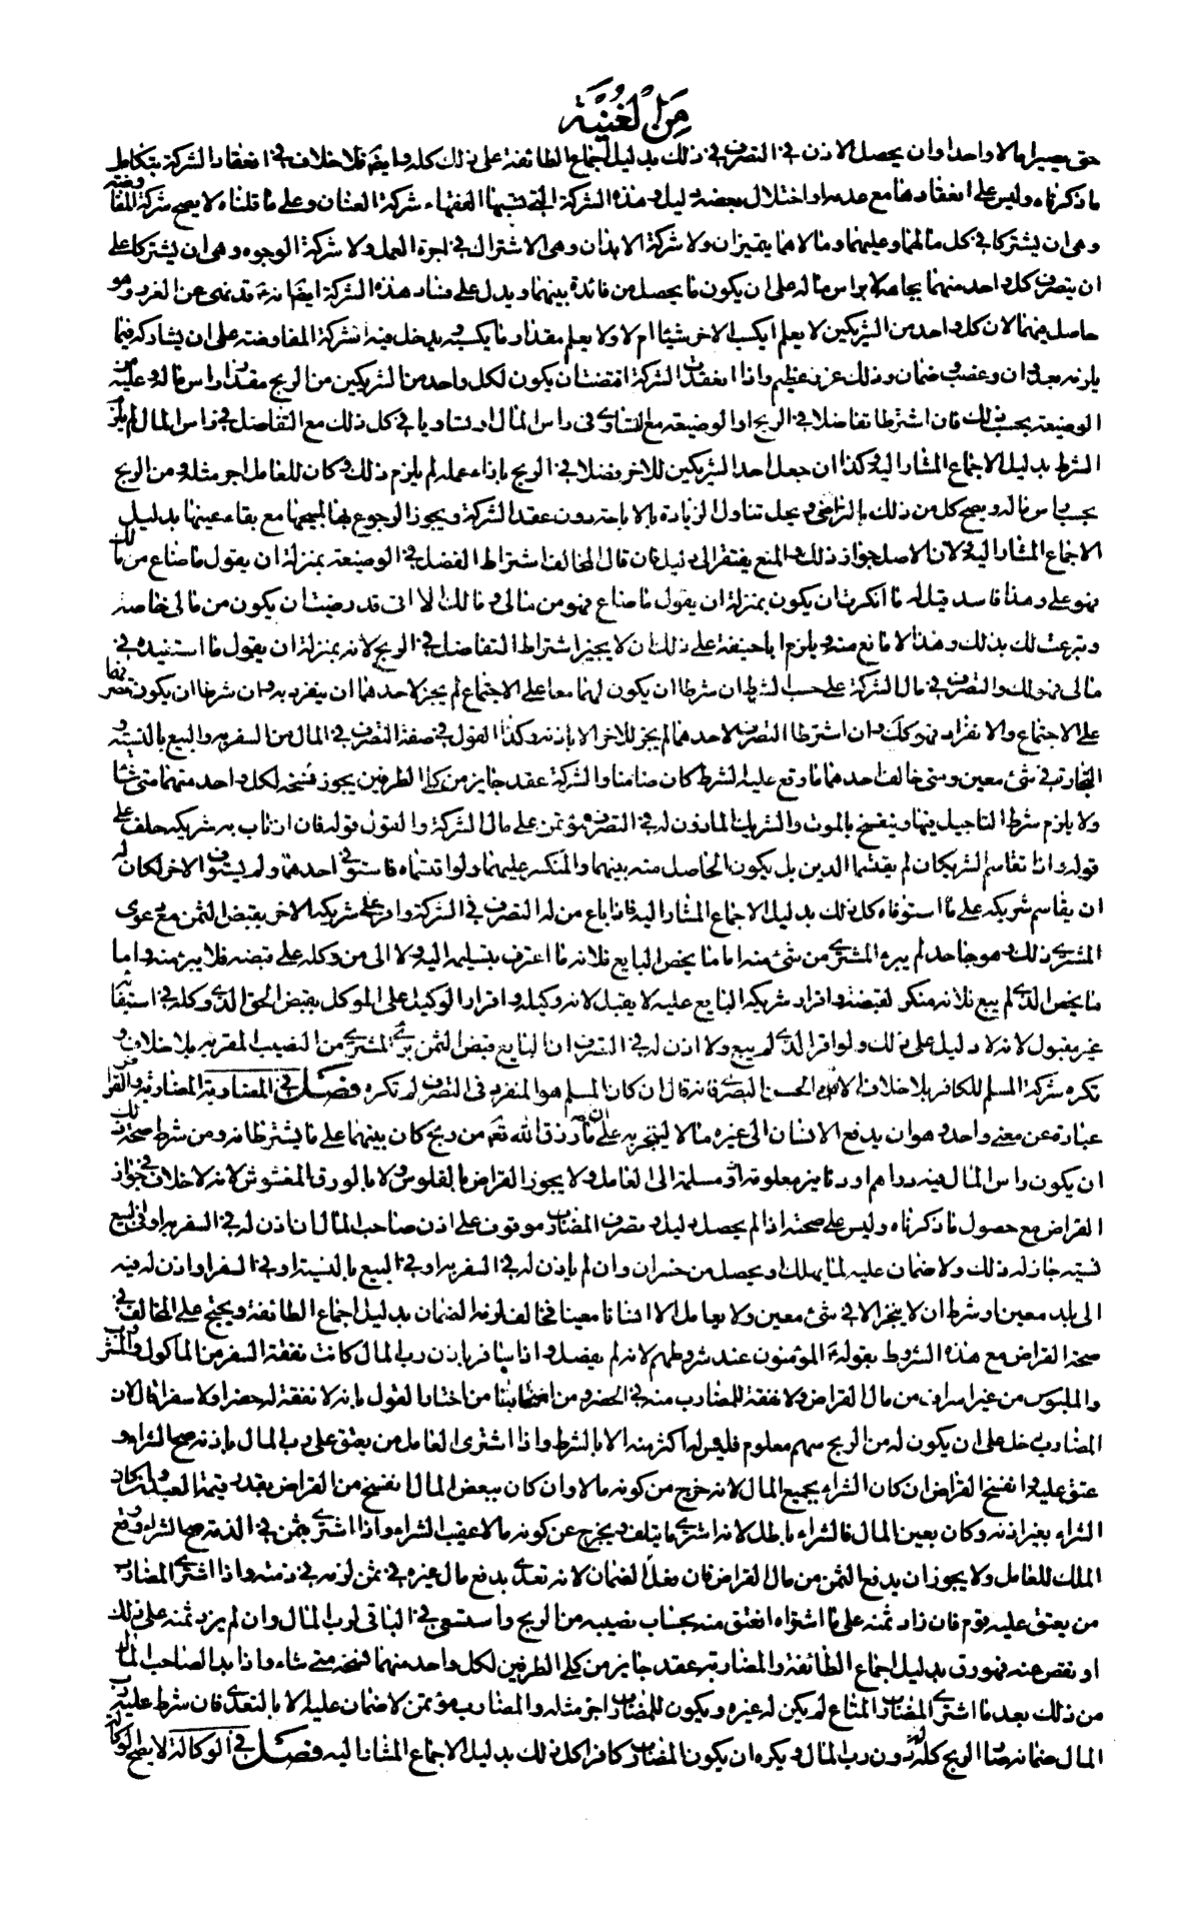 مِنَ الغُنْيَة
حتى يصيرا مالا واحدا وان يحصل الاذن في التصرف في ذلك بدليل اجماع الطائفة على ذلك كله وايضا فلا خلاف في انعقاد الشركة بتكامل
ما ذكرناه وليس على انعقادها مع عدمه او اختلال بعضه دليل وهذه الشركة التي تسميها الفقهاء شركة العنان وعلى ما قلناه لا يصح شركة المفاوضة
وهي ان يشتركا في كل ما لهما وعليهما ومالاهما يتميزان ولا شركة الابدان وهي الاشتراك في اجرة العمل ولا شركة الوجوه وهي ان يشتركا على
ان يتصرف كل واحد منهما بجاهه لا برأس ماله على ان يكون ما يحصل من فائدة بينهما ويدل على فساد هذه الشركة ايضا نهيه عن الغرر وهو
حاصل فيهما لان كل واحد من الشريكين لا يعلم ايكسب الاخر شيئا ام لا ولا يعلم مقدار ما يكسبه ويدخل فيه انشركة المفاوضة على ان يشاركه فيما
يلزمه بعدوان وغصب وضمان وذلك غرر عظيم واذا انعقدت الشركة اقتضت ان يكون لكل واحد من الشريكين من الربح مقدار راس ماله وعليه من
الوضيعة بحسب ذلك فان اشترطا تفاضلا في الربح او الوضيعة مع التساوي في راس المال او تساويا في كل ذلك مع التفاضل في راس المال لم يلزم
الشرط بدليل الاجماع المشار اليه وكذا ان جعل احد الشريكين للاخر فضلا في الربح بازاء عمله لم يلزم ذلك وكان للعامل اجر مثله ومن الربح
بحسب راس ماله ويصح كل من ذلك بالتراضي ويحل تناول الزيادة بالاباحة دون عقد الشركة ويجوز الرجوع بها لمبيحها مع بقاء عينها بدليل
الاجماع المشار اليه ولان الاصل جواز ذلك والمنع يفتقر الى دليل فان قال المخالف اشتراط الفضل في الوضيعة بمنزلة ان يقول ما ضاع من مالك
فهو علي وهذا فاسد قيل له ما انكرت ان يكون بمنزلة ان يقول ما ضاع فهو من مالي ومالك الا اني قد رضيت ان يكون من مالي خاصة
وتبرعت لك بذلك وهذا لا مانع منه ويلزم اباحنيفة على ذلك ان لا يجيز اشتراط التفاضل في الربح لانه بمنزلة ان يقول ما استفيده في
مالي فهو لك والتصرف في مال الشركة على حسب الشرط ان شرطا ان يكون لهما معا على الاجتماع لم يجز لاحدهما ان ينفرد به وان شرطا ان يكون تصرفهما
على الاجتماع والانفراد فهو كذلك وان اشترطا التصرف لاحدهما لم يجز للاخر الا باذنه وكذا القول في صفة التصرف في المال من السفر به والبيع بالنسية و
التجارة في شئ معين ومتى خالف احدهما ما وقع عليه الشرط كان ضامنا والشركة عقد جايز من كلى الطرفين يجوز فسخه لكل واحد منهما متى شاء
ولا يلزم شرط التاجيل فيها وينفسخ بالموت والشريك الماذون له في التصرف مؤتمن على مال الشركة والقول قوله فان ارتاب به شريكه حلف على
قوله واذا تقاسم الشريكان لم يقتسما الدين بل يكون الحاصل منه بينهما والمنكسر عليهما ولو اقتسماه فاستوفى احدهما ولم يستوف الاخر لكان له
ان يقاسم شريكه على ما استوفاه كل ذلك بدليل الاجماع المشار اليه فاذا باع من له التصرف في الشركة واقر على شريكه الاخر بقبض الثمن مع دعوى
المشتري ذلك وهو جاحد لم يبرء المشتري من شئ منه اما ما يخص البايع فلانه ما اعترف بتسليمه اليه ولا الى من وكله على قبضه فلا يبرء منه واما
ما يخص الذي لم يبع فلانه منكر لقبضه واقرار شريكه البايع عليه لا يقبل لانه وكيله واقرار الوكيل على الموكل بقبض الحق الذي وكله في استيفائه
غير مقبول لانه لا دليل على ذلك ولو اقر الذي لم يبع ولا اذن له في التصرف ان البايع قبض الثمن برئ المشتري من نصيب المقر به بلا خلاف و
تكره شركة المسلم للكافر بلا خلاف الا من الحسن البصري فانه قال ان كان المسلم هو المنفرد في التصرف لم تكره فصل في المضاربة المضاربة والقراض
عبارة عن معنى واحد وهو ان يدفع الانسان الى غيره مالا ليتجر به على ان ما رزق الله تعم من ربح كان بينهما على ما يشترطانه ومن شرط صحة ذلك
ان يكون راس المال فيه دراهم او دنانير معلومة مسلمة الى العامل ولا يجوز القراض بالفلوس ولا بالورق المغشوش لانه لا خلاف في جواز
القراض مع حصول ما ذكرناه وليس على صحته اذا لم يحصل دليل وتصرف المضارب موقوف على اذن صاحب المال ان اذن له في السفر به او في البيع
نسية جاز له ذلك ولا ضمان عليه لما يهلك او يحصل من خسران وان لم ياذن له في السفر به او في البيع بالنسية او في السفر او اذن له فيه
الى بلد معين او شرط ان لا يتجر الا في شئ معين ولا يعامل الا انسانا معينا فخالف لزمه الضمان بدليل اجماع الطائفة ويحتج على المخالف في
صحة القراض مع هذه الشروط بقوله المؤمنون عند شروطهم لانه لم يفصل واذا سافر باذن رب المال كانت نفقة السفر من الماكول والمشروب
والملبوس من غير اسراف من مال القراض ولا نفقة للمضارب منه في الحضر ومن اصحابنا من اختار القول بانه لا نفقة له حضرا ولا سفرا قال لان
المضارب دخل على ان يكون له من الربح سهم معلوم فليس له اكثر منه الا بالشرط واذا اشترى العامل من يعتق على رب المال باذنه صح الشراء و
عتق عليه وانفسخ القراض ان كان الشراء بجميع المال لانه خرج من كونه مالا وان كان ببعض المال انفسخ من القراض بقدر قيمة العبد وان كان
الشراء بغير اذنه وكان بعين المال فالشراء باطل لانه اشترى ما يتلف ويخرج عن كونه مالا عقيب الشراء واذا اشترى بثمن في الذمة صح الشراء ووقع
الملك للعامل ولا يجوز ان يدفع الثمن من مال القراض فان فعل لزمه الضمان لانه تعدى بدفع مال غيره في ثمن لزمه في ذمته واذا اشترى المضارب
من يعتق عليه قوم فان زاد ثمنه على ما اشتراه انعتق منه بحساب نصيبه من الربح واستسعى في الباقي لرب المال وان لم يزد ثمنه على ذلك
او نقص عنه فهو رق بدليل اجماع الطائفة والمضاربة عقد جايز من كلى الطرفين لكل واحد منهما فسخه متى شاء واذا بدا لصاحب المال
من ذلك بعد ما اشترى المضارب المتاع لم يكن له غيره ويكون للمضارب اجر مثله والمضارب مؤتمن لا ضمان عليه الا بالتعدي فان شرط عليه رب
المال ضمانه صار الربح كله له دون رب المال ويكره ان يكون المضارب كافرا كل ذلك بدليل الاجماع المشار اليه فصل في الوكالة لا يصح الوكالة